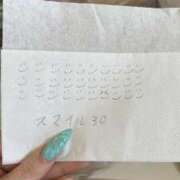 スマイル30